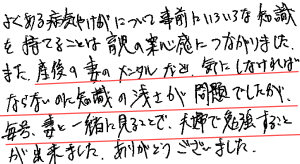 よくある病気やけがについて事前にいろいろな知識
を持てることは親の安心感につながりました。
また、産後の妻のメンタルなど、気にしなければ
ならないのに知識の浅さが問題でしたが、
毎号、妻と一緒に見ることで、夫婦で勉強すること
が出来ました。ありがとうございました。